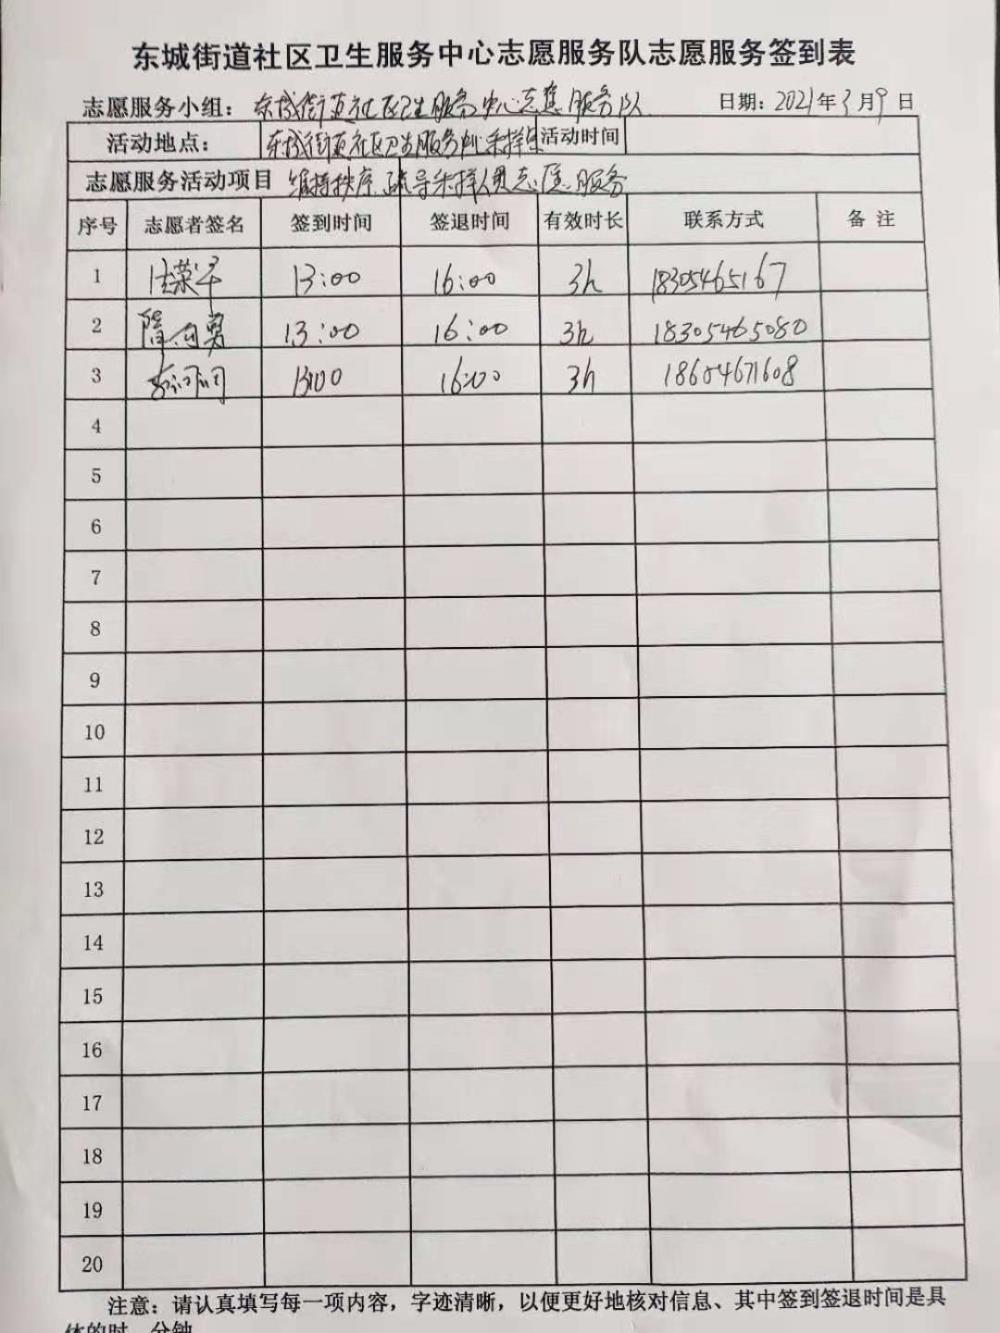 东城街道社区卫生服务中心志愿服务队志愿服务签到表
志愿服务小组：东城街道社区卫生服务中心志愿服务队 日期：2021年3月9日
活动地点： 东城街道社区卫生服务中心采样点 活动时间
志愿服务活动项目 维持秩序、疏导采样人员志愿服务
序号 志愿者签名 签到时间 签退时间 有效时长 联系方式 备 注
1 13:00 16:00 3h 18305465167
2 隋向勇 13:00 16:00 3h 18305465080
3 13:00 16:00 3h 18654671608
4
5
6
7
8
9
10
11
12
13
14
15
16
17
18
19
20
注意：请认真填写每一项内容，字迹清晰，以便更好地核对信息、其中签到签退时间是具
体的时、分钟